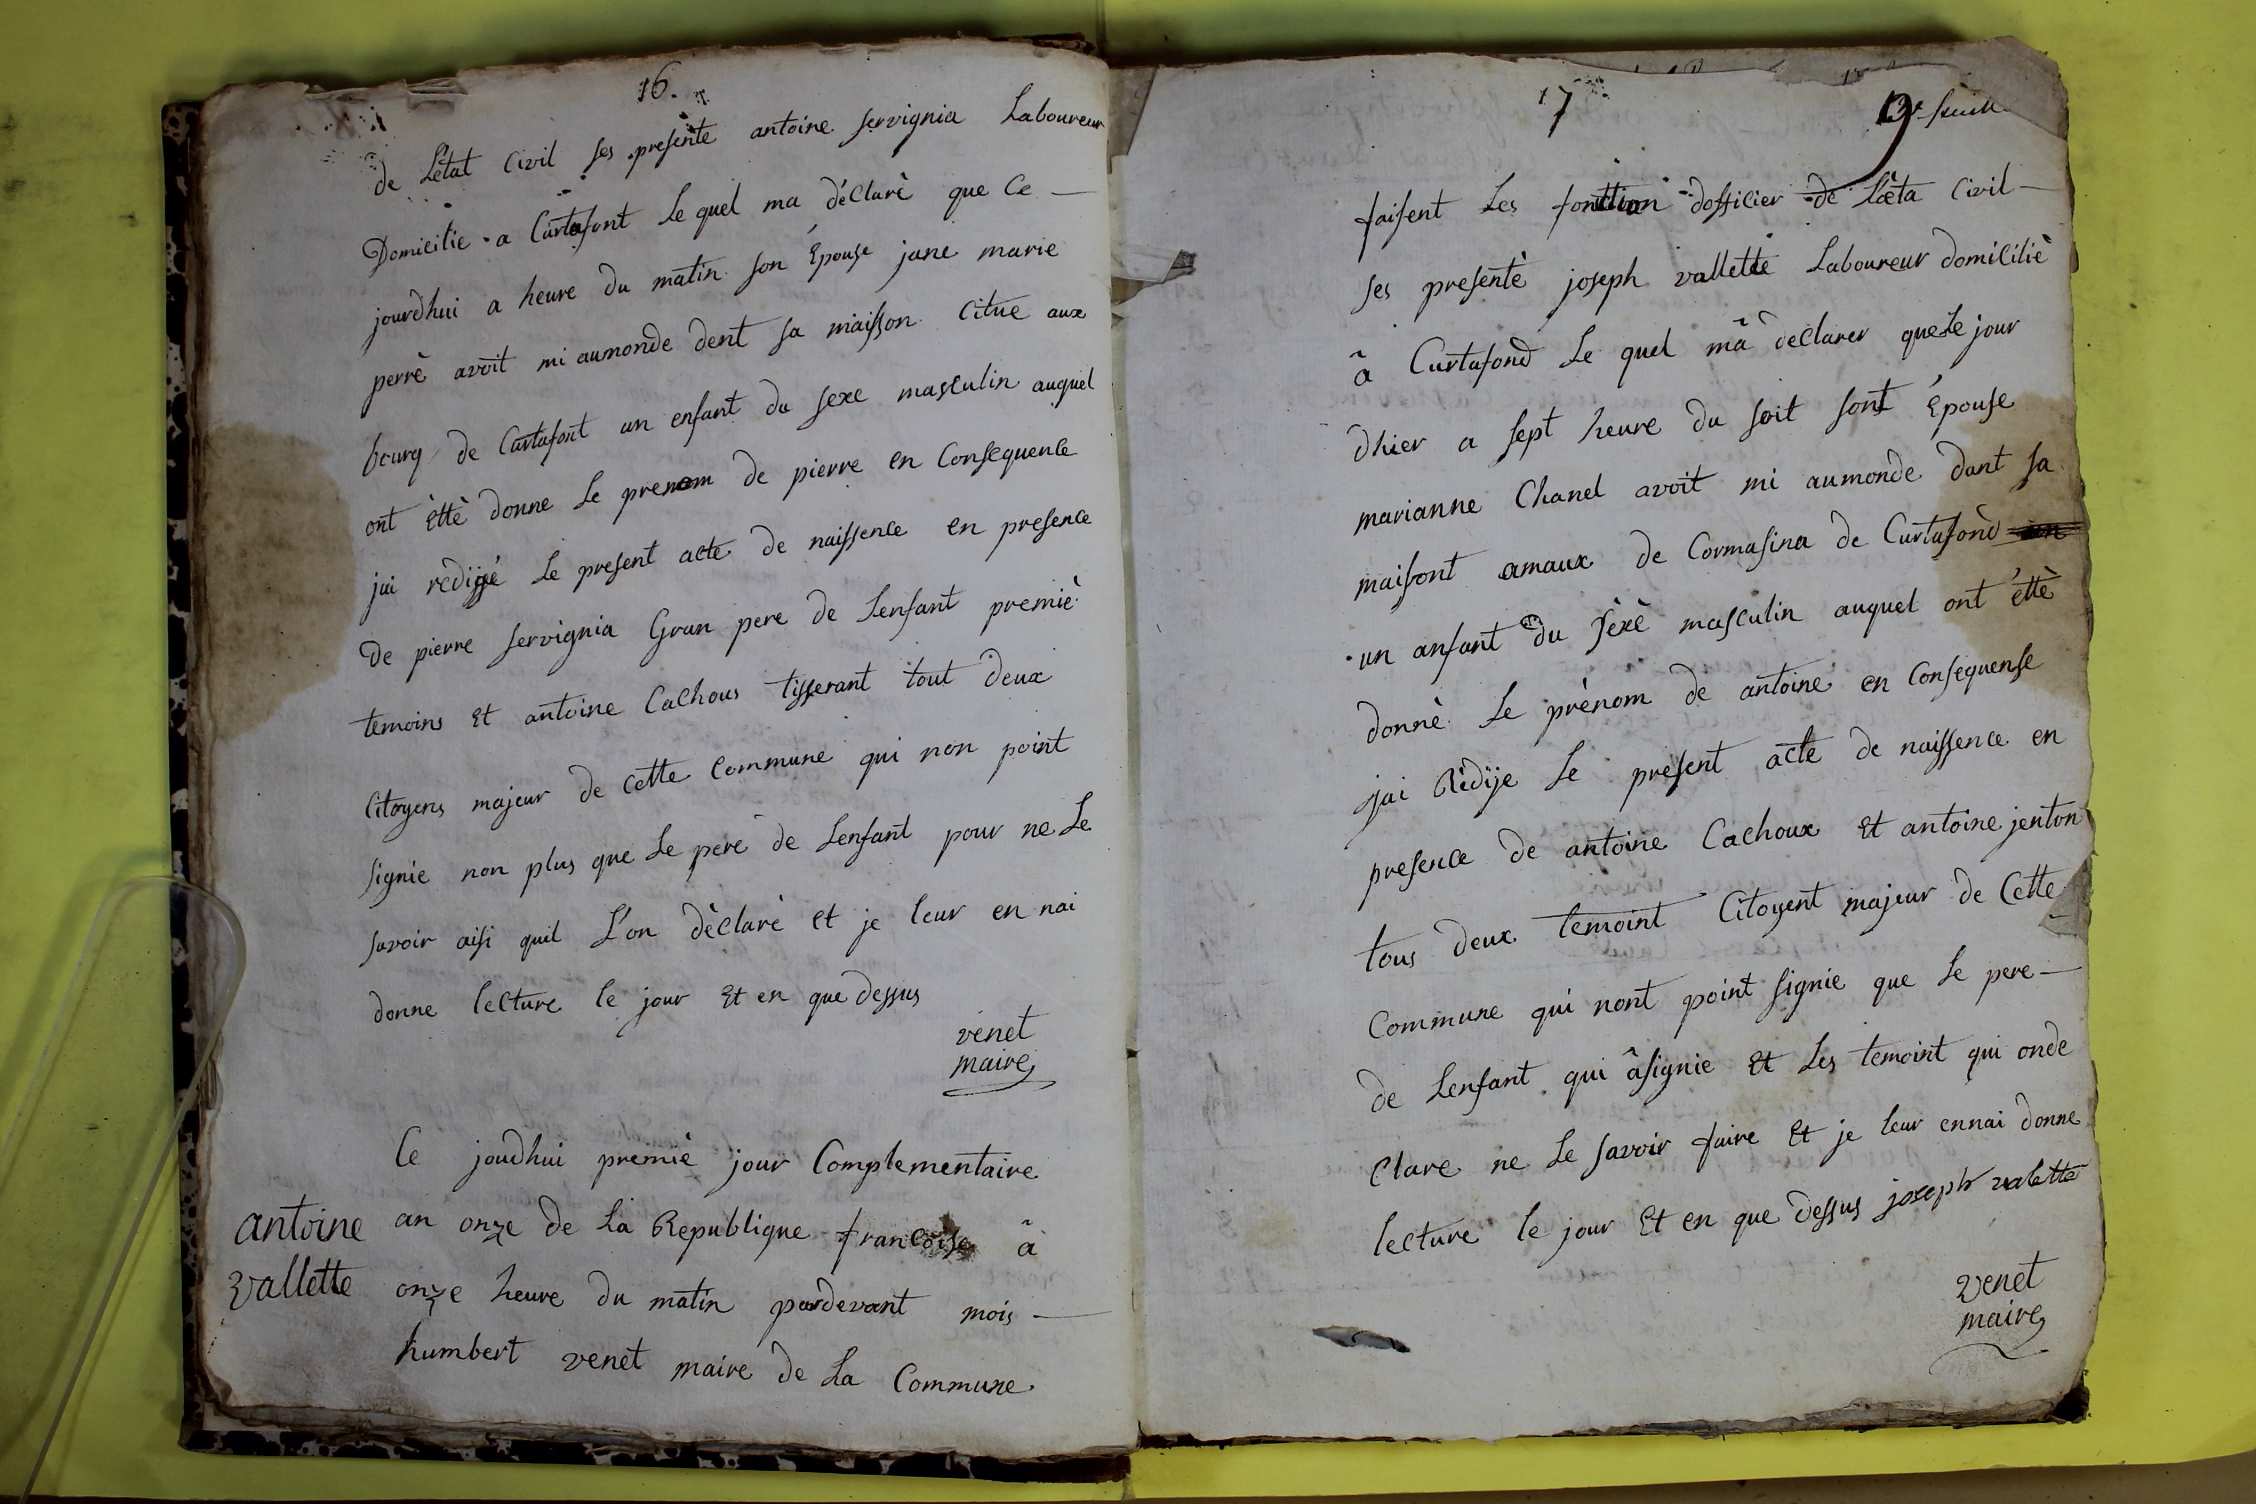 16.
de Létat Civil ses presente antoine servignia Laboureur
Domicilie a Curtafont Le quel ma déClarè que Ce
jourdhui a heure du matin son Épouse jane marie
perrè avoit mi aumonde dent sa maisson Citue aux
bourg de Curtafont un enfant du sexe masculin auquel
ont èttè donne Le prenom de pierre en Consequence
jai redigé Le present acte de naissence en presence
de pierre servignia Gran pere de Lenfant premiè
temoins Et antoine Cachous tisserant tout deux
Citoyens majeur de cette Commune qui non point
signie non plus que Le pere de Lenfant pour ne Le
savoir aisi quil L'on dèClarè et je leur en nai
donne lecture le jour Et en que dessus
venet
maire
Ce joudhui premiè jour Complementaire
antoine
vallette
an onze de La Republique francoise â
onze heure du matin pardevant mois
humbert venet maire de La Commune
17
9
feuill
faisent Les fonttion dofficier de L'êta Civil
ses presentè joseph vallette Laboureur domiciliè
â Curtafond Le quel mâ deClarer que Le jour
dhier a sept heure du soit sont Épouse
marianne Chanel avoit mi aumonde dant sa
maisont amaux de Cormasina de Curtafond
un anfant du sèxè masculin auquel ont éttè
donnè Le prènom de antoine en Consequense
jai Rèdije Le present acte de naissence en
presence de antoine Cachoux Et antoine jenton
tous deux temoint Citoyent majeur de Cette
Commune qui nont point signie que Le pere
de Lenfant qui âsignie Et Les temoint qui onde
Clare ne Le savoir faire Et je leur ennai donne
lecture le jour Et en que dessus joseph valette
venet
maire